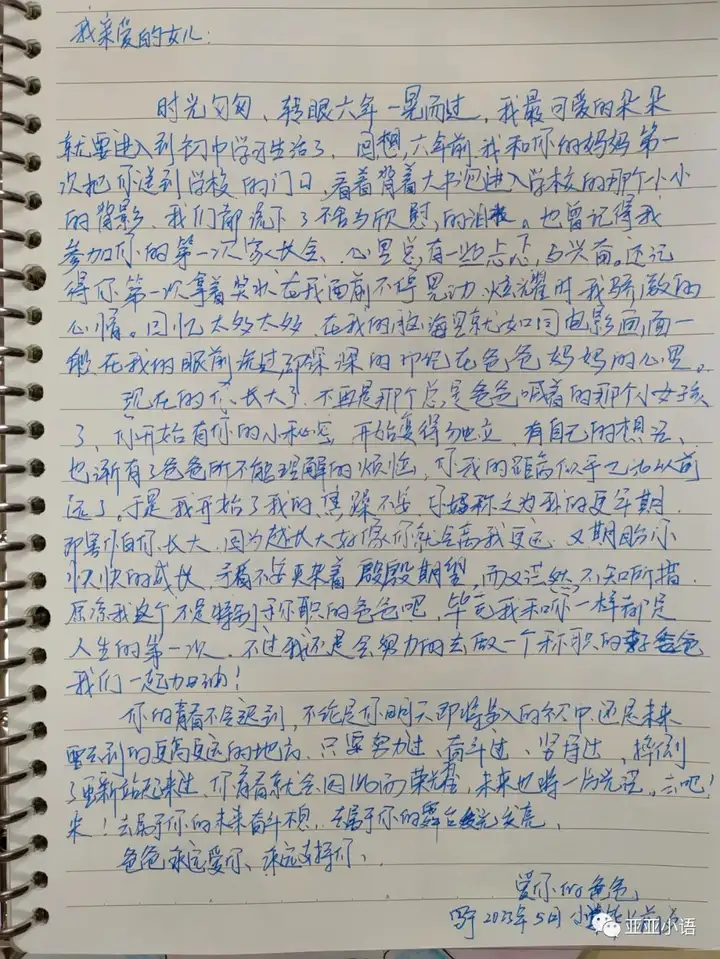 我亲爱的女儿:
时光匆匆、转眼六年一晃而过，我最可爱的朵朵
就要进入到初中学习生活了，回想，六年前，我和你的妈妈第一
次把你送到学校的门口，看着背着大书包进入学校的那个小小
的背影，我们都流下了不舍与欣慰的泪。也曾记得我
参加你的第一次家长会、心里总有一些忐忑与兴奋，还记
得你第一次拿着奖状在我面前不停晃动、炫耀时我骄傲的
心情。回忆太多太多 在我的脑海里就如同电影画面一
般在我的眼前流过，都深深的印记在爸爸妈妈的心里。
现在的你、长大了 不再是那个总是爸爸喊着的那个小女孩
了、你开始有你的小秘密 开始变得独立 有自己的想法、
也渐有了爸爸所不能理解的烦恼，你我的距离似乎也比以前
远了，于是我开始了我的焦躁不安 你妈称之为我的更年期.
即害怕你长大，因为越长大好像你就会离我更远 又期盼你
快快的成长，矛盾不安夹杂着殷殷期望，而又茫然不知所措.
原谅我这个不是特别于称职的爸爸吧，毕竟我和你一样都是
人生的第一次，不过我还是会努力的去做一个称职的好爸爸
我们一起加油！
你的青春不会迟到，不论是你明天即将步入的初中，还是未来
要去到的更高更远的地方、只要努力过、奋斗过、坚持过，摔倒
了重新站起来过，你青春就会因此而荣光，未来也将一片光亮，去吧！
朵！去属于你的未来奋斗不息，去属于你的舞台发光发亮、
爸爸永远爱你、永远支持你、
爱你的爸爸
写于2023年5月 小学毕业前夕
亚亚小语